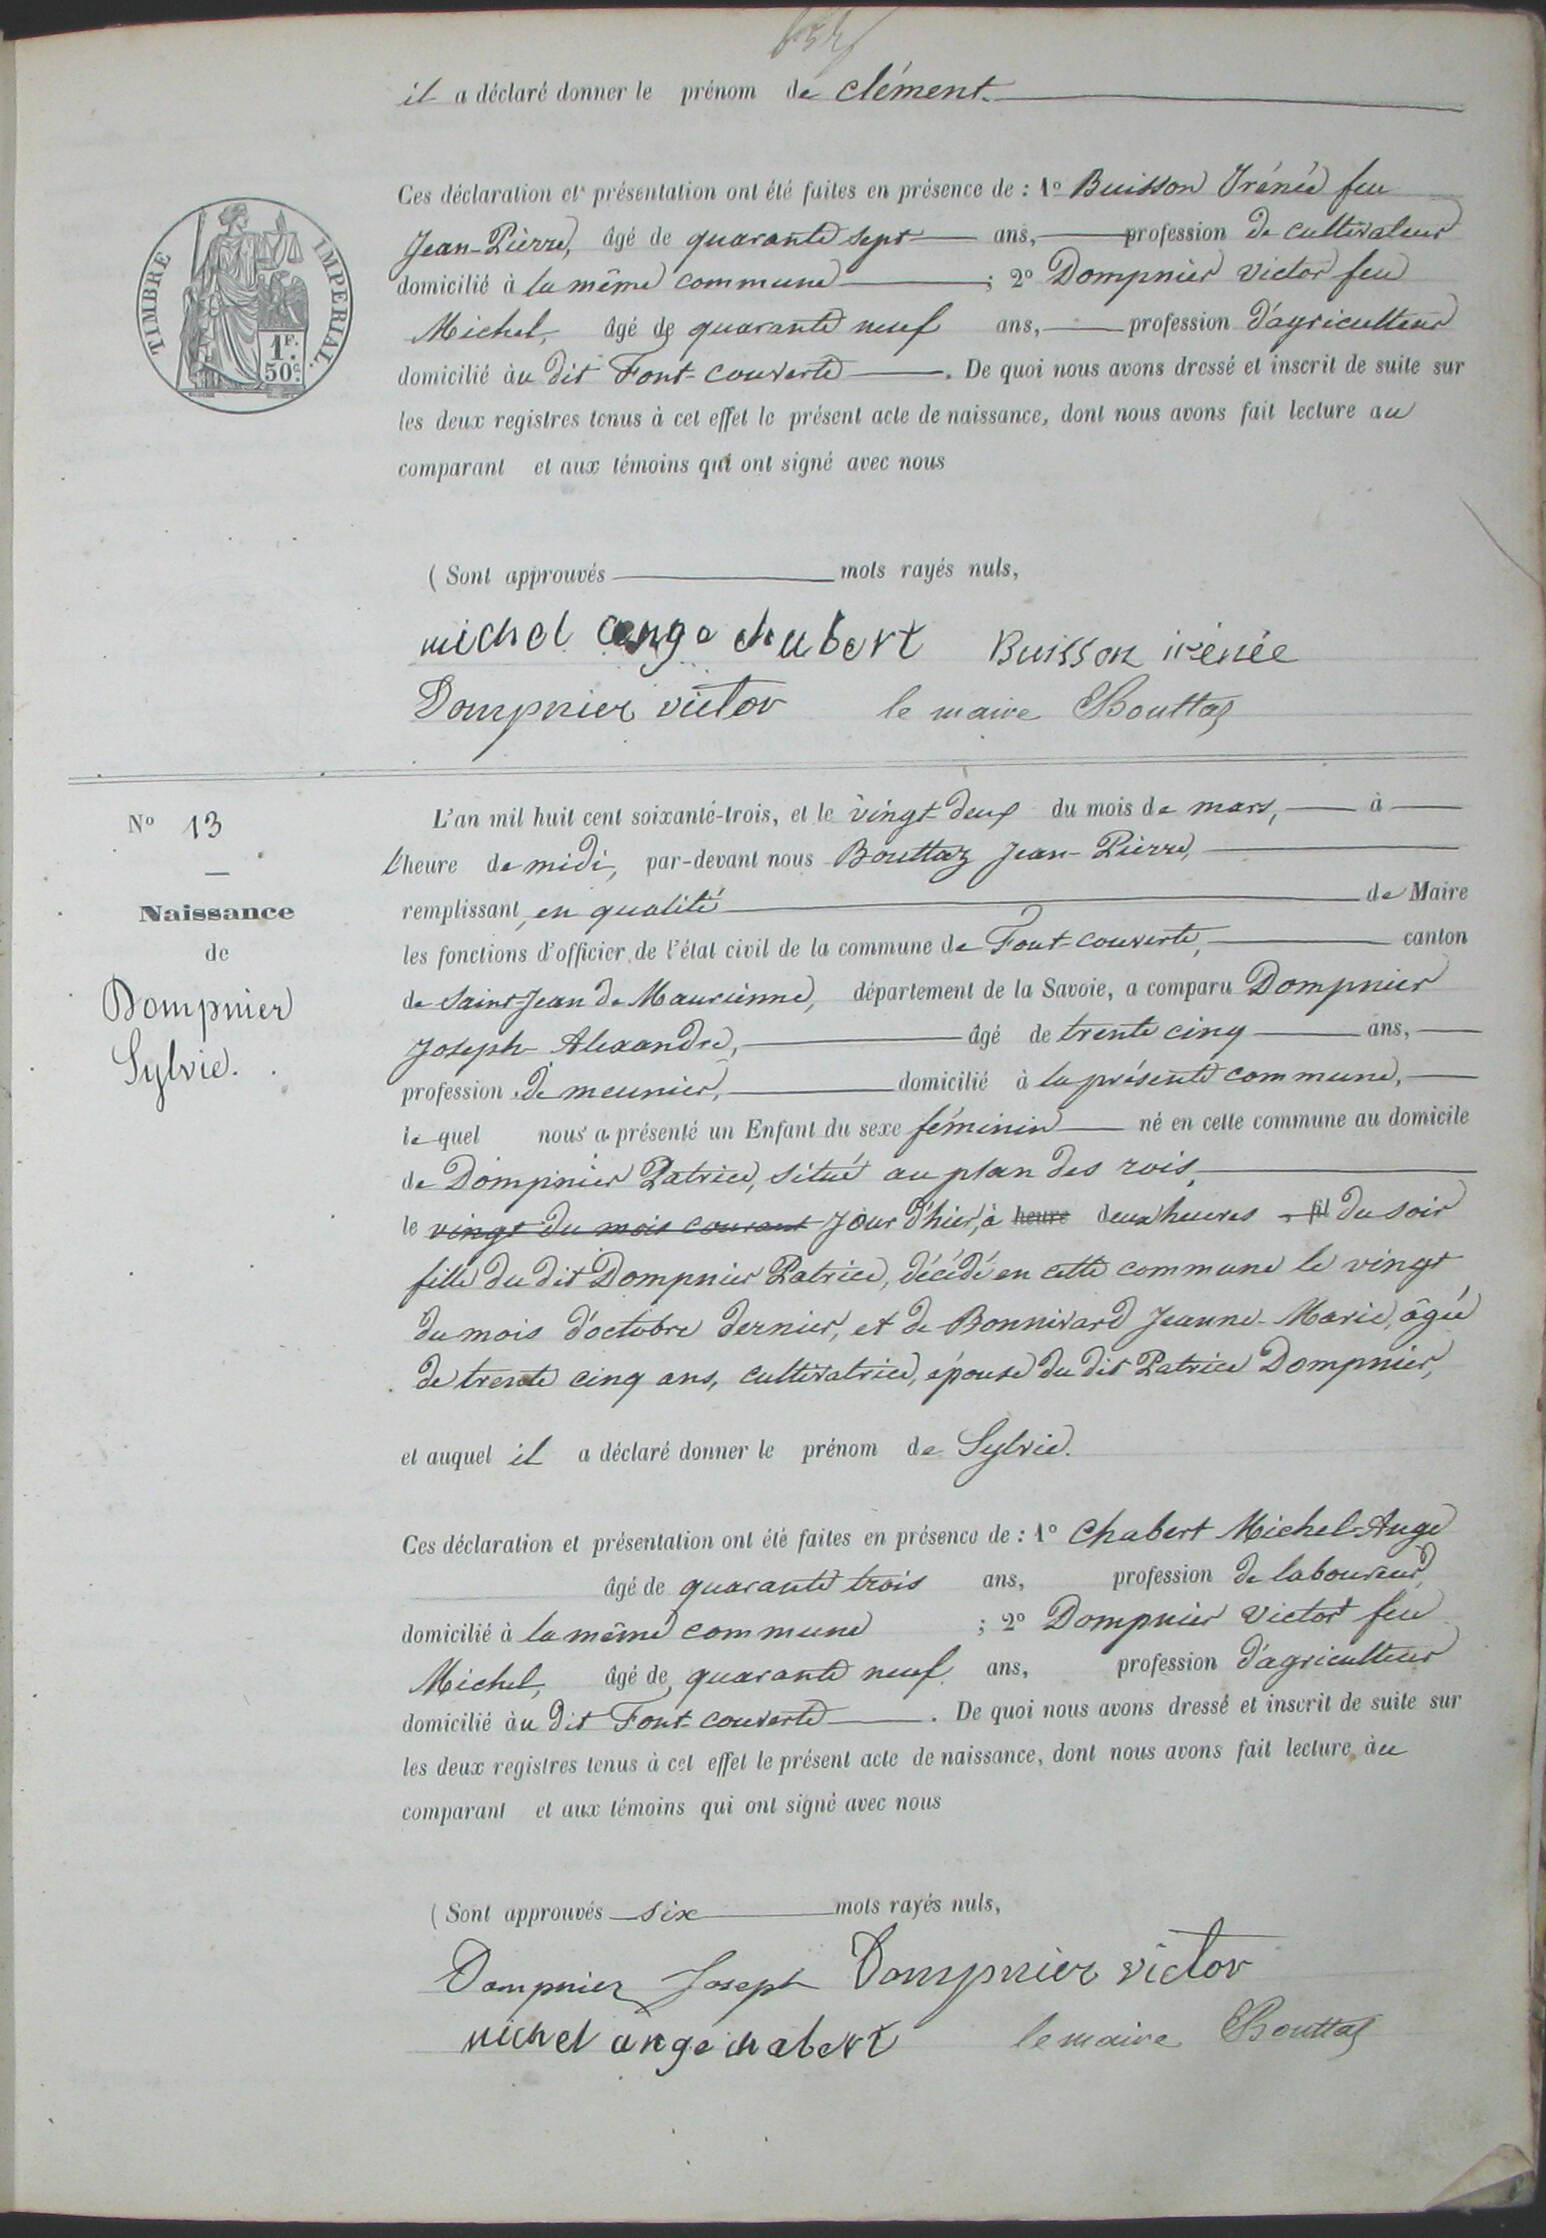 il a déclaré donner le prénom de Clément.
TIMBRE IMPERIAL.
1F. 50c.
Ces déclaration et présentation ont été faites en présence de : 1º Buisson Irénée feu
Jean-Pierre, âgé de quarante sept ans, profession de cultivateur
domicilié à la même commune ; 2º Dompnier Victor feu
Michel, âgé de quarante neuf ans, profession d'agriculteur
domicilié àu dit Font-couverte. De quoi nous avons dressé et inscrit de suite sur
les deux registres tenus à cet effet le présent acte de naissance, dont nous avons fait lecture au
comparant et aux témoins qui ont signé avec nous
(Sont approuvés mots rayés nuls,
michel ange chabert Buisson irénée
Dompnier victor le maire Bouttaz
Nº 13
Naissance
de
Dompnier
Sylvie.
L'an mil huit cent soixante-trois, et le vingt-deux du mois de mars, à
l'heure de midi, par-devant nous Bouttaz Jean-Pierre,
remplissant, en qualité de Maire
les fonctions d'officier de l'état civil de la commune de Font-couverte, canton
de Saint-Jean de Maurienne, département de la Savoie, a comparu Dompnier
Joseph-Alexandre, âgé de trente cinq ans,
profession de meunier, domicilié à la présente commune,
le quel nous a présenté un Enfant du sexe féminin né en cette commune au domicile
de Dompnier Patrice, situé au plan des rois,
le vingt du mois courant jour d'hier, à heure deux heures fil du soir
fille du dit Dompnier Patrice, décédé en cette commune le vingt
du mois d'octobre dernier, et de Bonnivard Jeanne-Marie, âgée
de trente cinq ans, cultivatrice, épouse du dit Patrice Dompnier,
et auquel il a déclaré donner le prénom de Sylvie.
Ces déclaration et présentation ont été faites en présence de : 1º Chabert Michel-Ange
âgé de quarante trois ans, profession de laboureur,
domicilié à la même commune ; 2º Dompnier Victor feu
Michel, âgé de quarante neuf ans, profession d'agriculteur
domicilié àu dit Font-couverte. De quoi nous avons dressé et inscrit de suite sur
les deux registres tenus à cet effet le présent acte de naissance, dont nous avons fait lecture àu
comparant et aux témoins qui ont signé avec nous
(Sont approuvés six mots rayés nuls,
Dompnier Joseph Dompnier victor
michel ange chabert le maire Bouttaz